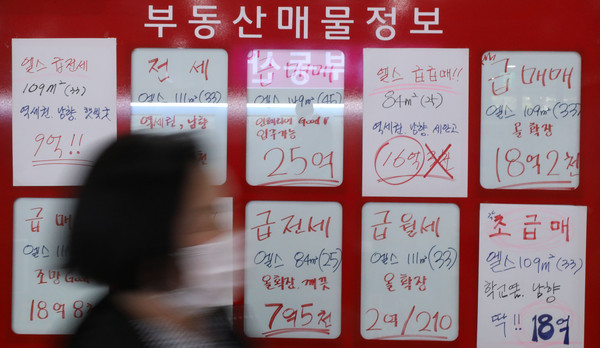 부동산매물정보
엘스 급전세
109m²(33)
역세권, 남향
9억!!
전세
엘스 111m²(33)
역세권, 남향
급매매
엘스 149m²(45)
입주가능
25억
엘스 급급매!!
84m²(25)
역세권, 남향, 세안고
16억
급매매
엘스 109m²(33)
올확장
18억2천
급매
엘스 111
조망 Good
18억8
급전세
엘스 84m²(25)
올확장, 깨끗
7억5천
급월세
엘스 111m²(33)
올확장
2억/210
초급매
엘스 109m²(33)
학교옆, 남향
딱!! 18억